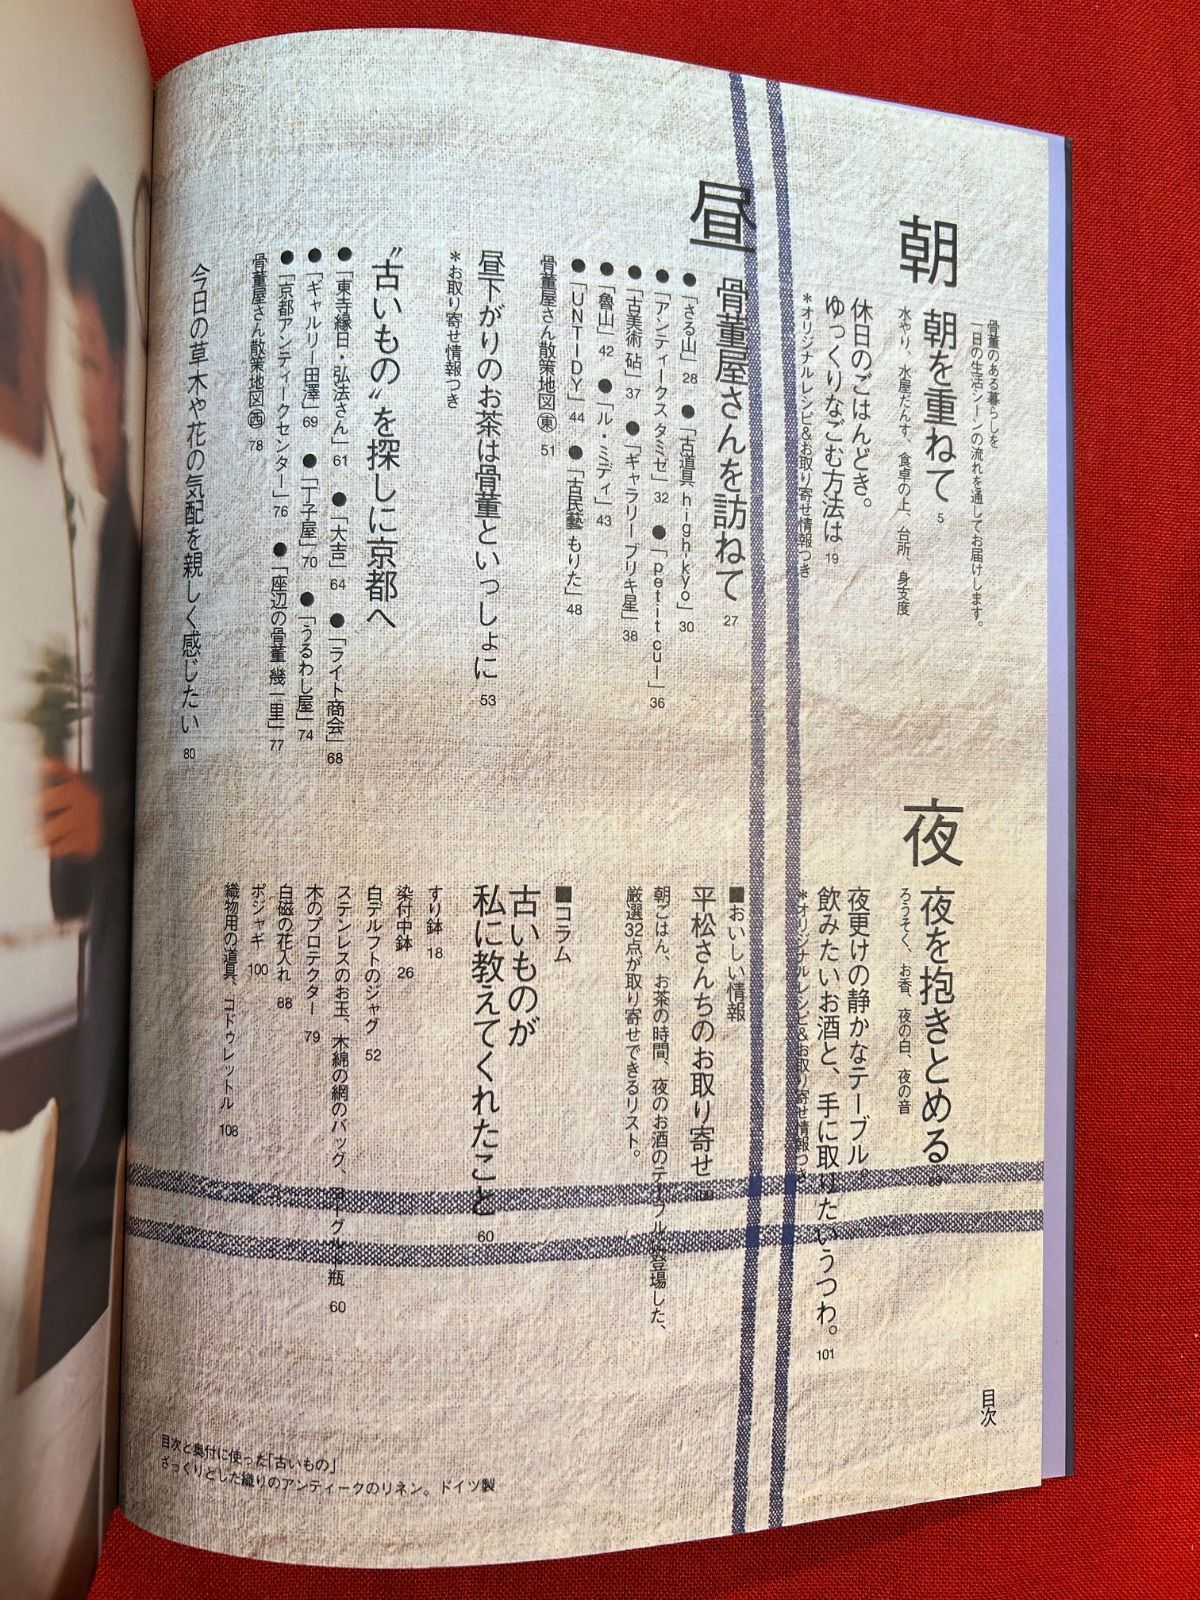 目次
骨董のある暮らしを
一日の生活シーンの流れを通してお届けします。
朝
朝を重ねて 5
水やり、水屋だんす、食卓の上、台所、身支度
休日のごはんどき。
ゆっくりなごむ方法は 19
＊オリジナルレシピ&お取り寄せ情報つき
昼
骨董屋さんを訪ねて 27
●「さる山」28 ●「古道具 high-kyo」30
●「アンティークスタミゼ」32 ●「petit cul」36
●「古美術 砧」37 ●「ギャラリーブリキ星」38
●「魯山」42 ●「ル・ミディ」43
●「UNTIDY」44 ●「古民藝 もりた」48
骨董屋さん散策地図㊗東 51
昼下がりのお茶は骨董といっしょに 53
＊お取り寄せ情報つき
〝古いもの〟を探しに京都へ
●「東寺縁日・弘法さん」61 ●「大吉」64 ●「ライト商会」68
●「ギャルリー田澤」69 ●「丁子屋」70 ●「うるわし屋」74
●「京都アンティークセンター」76 ●「座辺の骨董 幾一里」77
骨董屋さん散策地図 西 78
今日の草木や花の気配を親しく感じたい 80
夜
夜を抱きとめる
ろうそく、お香、夜の白、夜の音
夜更けの静かなテーブル。
飲みたいお酒と、手に取りたいうつわ。 101
＊オリジナルレシピ&お取り寄せ情報つき
■おいしい情報
平松さんちのお取り寄せ
朝ごはん、お茶の時間、夜のお酒のテーブルに登場した、
厳選32点が取り寄せできるリスト。
■コラム
古いものが
私に教えてくれたこと 60
すり鉢 18
染付中鉢 26
白デルフトのジャグ 52
ステンレスのお玉、木綿の網のバッグ、ヨーグルト瓶 60
木のプロテクター 79
白磁の花入れ 88
ポジャギ 100
織物用の道具、コドゥレットル 108
目次と奥付に使った「古いもの」
ざっくりとした織りのアンティークのリネン。ドイツ製